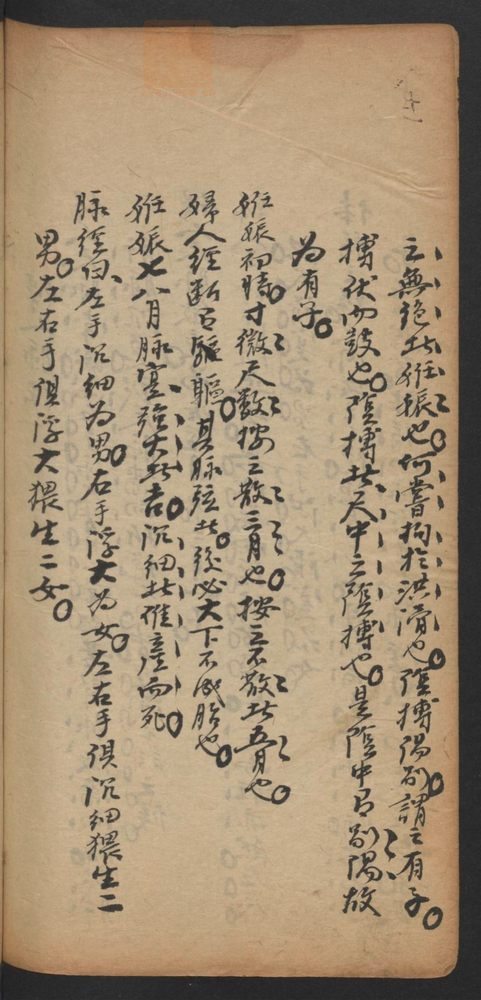 之無絕者姙娠也何嘗拘於洪滑也陰搏陽別謂之有子
搏伏而鼓也陰搏者尺中之陰搏也是陰中有別陽故
為有子
姙娠初時寸微尺數按之散三月也按之不散者五月也
婦人經斷有軀其脉弦者後必大下不成胎也
姙娠七八月脉實強大者吉沉細者難產而死
脉經曰左手沉細為男右手浮大為女左右手俱沉細猥生二
男左右手俱浮大猥生二女